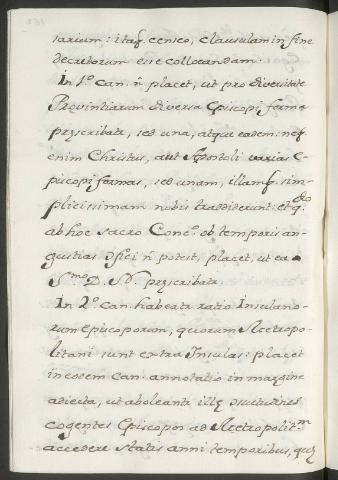 sarium: itaq. censeo, clausulam in fine
decretorum esse collocandam.
In 1.º can. ñ placet, ut pro diversitate
Provintiarum diversa Episcopi forma
præscribatur, sed una, atque eadem: neq.
enim Christus, aut Apostoli varias E-
piscopi formas, sed unam, illamq. sim-
plicissimam nobis tradiderunt: et q.do
ab hoc sacro Conc.º ob temporis an-
gustias effici ñ potest, placet, ut ea
S.mo D. N. præscribatur
In 2.º can. habeatur ratio Insulano-
rum Episcoporum, quorum Metropo-
litani sunt extra Insulas: placet
in eodem can. annotatio in margine
adiecta, ut aboleantur illæ
cogentes Episcopos ad Metropolit.m
accedere statis anni temporibus, quæ